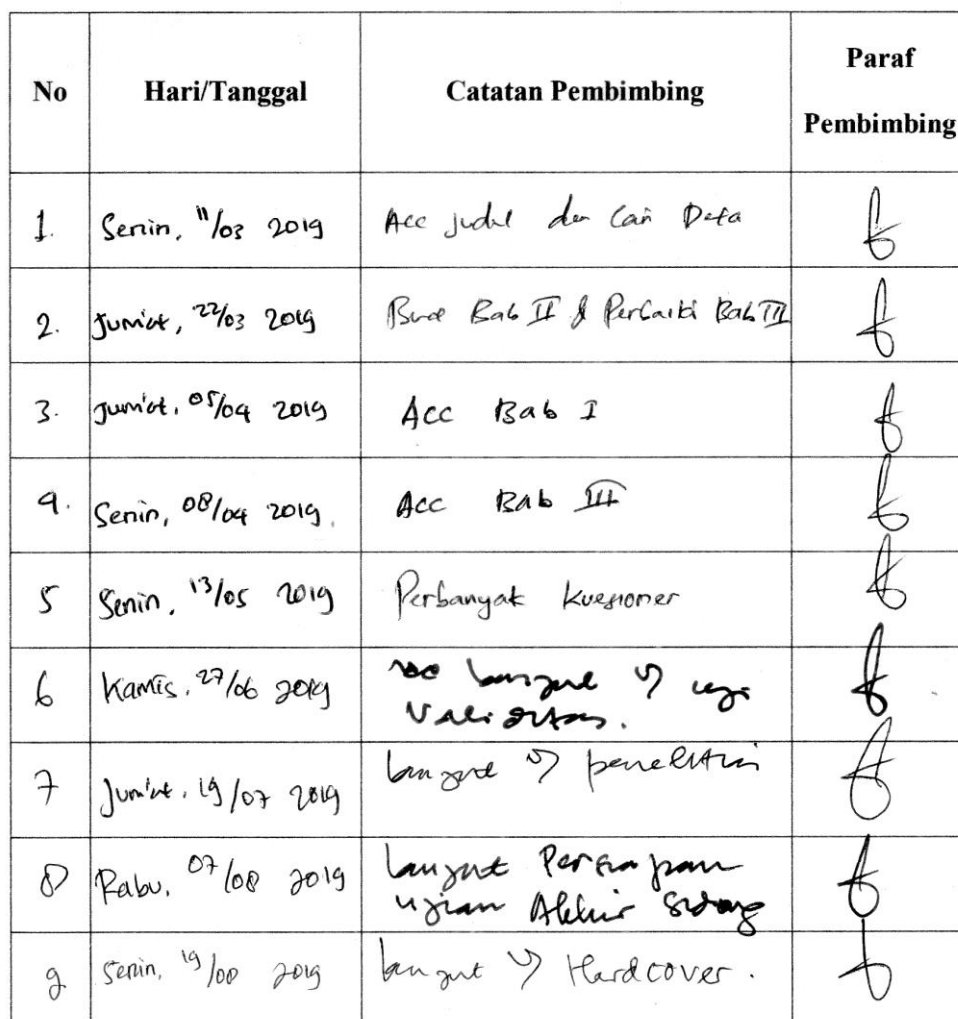 No Hari/Tanggal Catatan Pembimbing Paraf
Pembimbing
1. Senin, 11/03 2019 Acc judul dan Cari Data
2. Jum'at, 22/03 2019 Bab II & Perbaiki Bab III
3. Jum'at, 05/04 2019 Acc Bab I
4. Senin, 08/04 2019. Acc Bab III
5 Senin, 13/05 2019 Perbanyak Kuesioner
6 Kamis, 27/06 2019 lanjut uji
Validitas.
7 Jum'at, 19/07 2019 lanjut penelitian
8 Rabu, 07/08 2019 lanjut Persiapan
ujian Akhir Sidang
9 Senin, 19/08 2019 lanjut Hardcover.